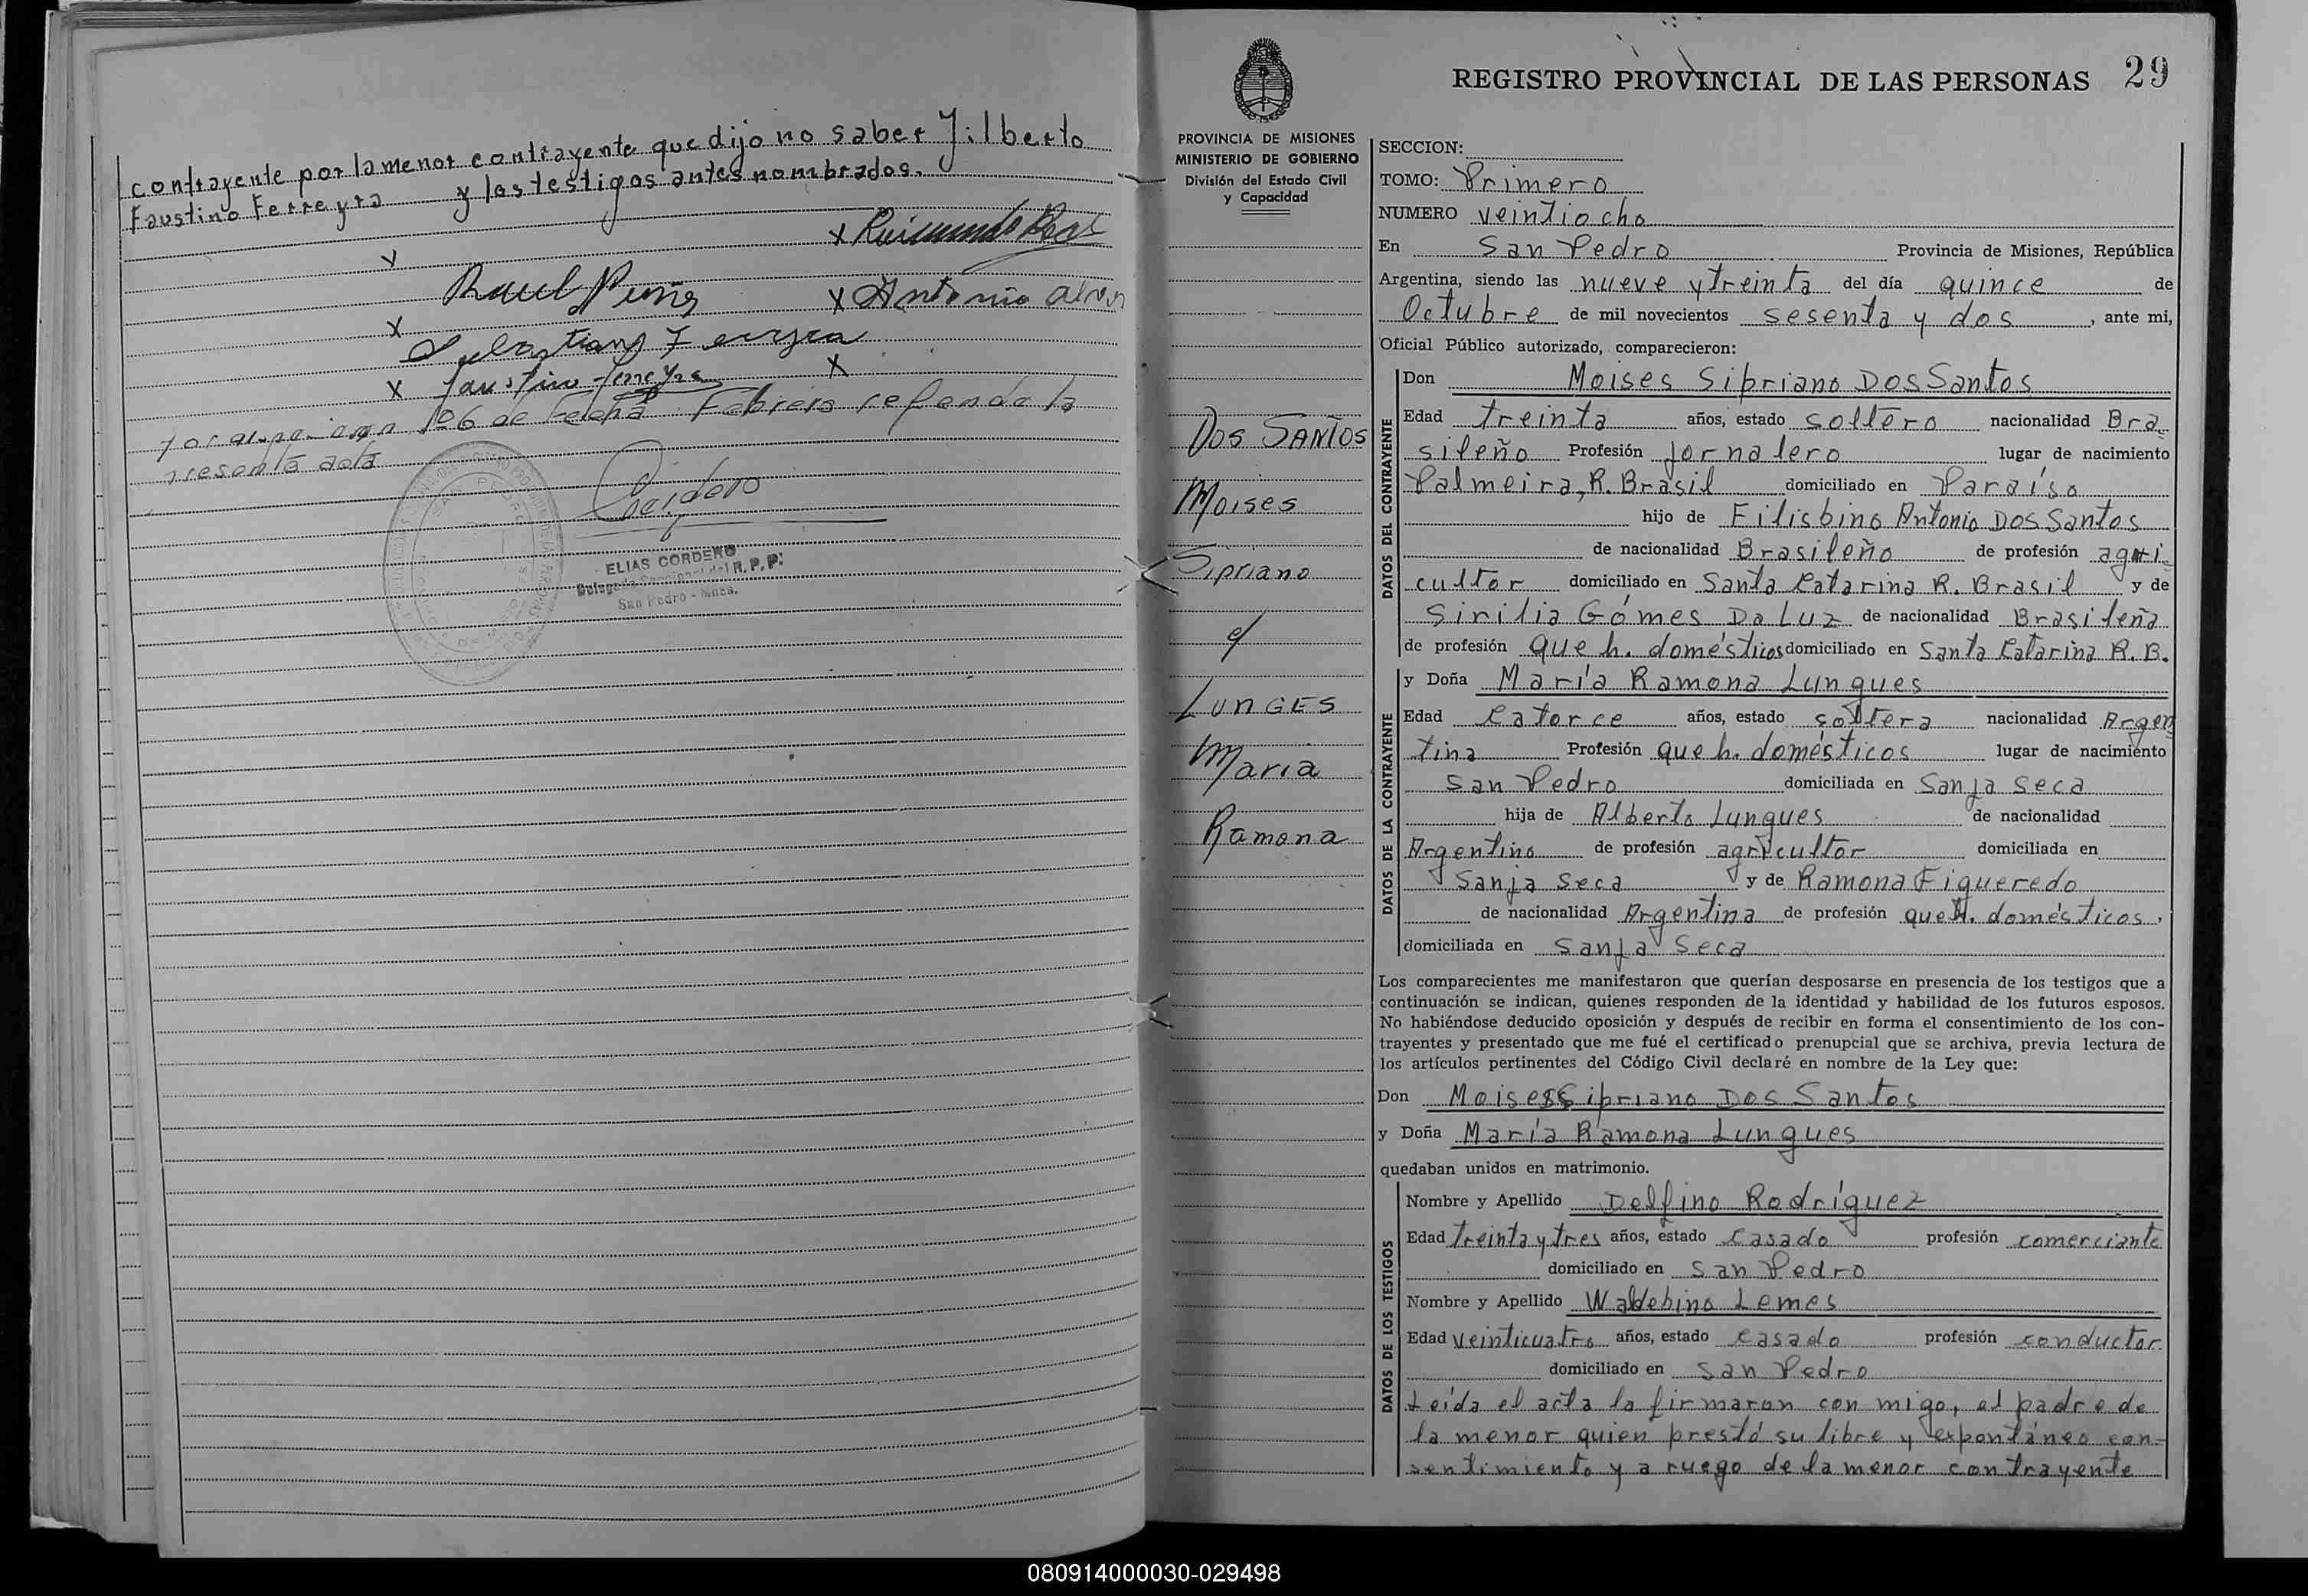 contrayente por la menor contrayente que dijo no saber Jilberto
Faustino Ferreyra y los testigos antes nombrados.
x Raimundo
x Antonio
x Faustino Ferreyra
106 de Fecha Febrero
presente acta
ELIAS CORDERO
Delegado Seccional del R.P.P.
San Pedro - Mnes.
REGISTRO PROVINCIAL DE LAS PERSONAS 29
PROVINCIA DE MISIONES
MINISTERIO DE GOBIERNO
División del Estado Civil
y Capacidad
DOS SANTOS
Moises
Sipriano
y
LUNGES
Maria
Ramona
SECCION:
TOMO: Primero
NUMERO veintiocho
En San Pedro Provincia de Misiones, República
Argentina, siendo las nueve y treinta del día quince de
Octubre de mil novecientos sesenta y dos, ante mi,
Oficial Público autorizado, comparecieron:
DATOS DEL CONTRAYENTE
Don Moises Sipriano Dos Santos
Edad treinta años, estado soltero nacionalidad Bra-
sileño Profesión jornalero lugar de nacimiento
Palmeira, R. Brasil domiciliado en Paraíso
hijo de Filisbino Antonio Dos Santos
de nacionalidad Brasileño de profesión agri-
cultor domiciliado en Santa Catarina R. Brasil y de
Sirilia Gómes Da Luz de nacionalidad Brasileña
de profesión que h. domésticos domiciliado en Santa Catarina R. B.
DATOS DE LA CONTRAYENTE
y Doña María Ramona Lungues
Edad Catorce años, estado soltera nacionalidad Argen
tina Profesión que h. domésticos lugar de nacimiento
San Pedro domiciliada en Sanja Seca
hija de Alberto Lungues de nacionalidad
Argentino de profesión agricultor domiciliada en
Sanja Seca y de Ramona Figueredo
de nacionalidad Argentina de profesión que h. domésticos,
domiciliada en Sanja Seca
Los comparecientes me manifestaron que querían desposarse en presencia de los testigos que a
continuación se indican, quienes responden de la identidad y habilidad de los futuros esposos.
No habiéndose deducido oposición y después de recibir en forma el consentimiento de los con-
trayentes y presentado que me fué el certificado prenupcial que se archiva, previa lectura de
los artículos pertinentes del Código Civil declaré en nombre de la Ley que:
Don Moises Sipriano Dos Santos
y Doña María Ramona Lungues
quedaban unidos en matrimonio.
DATOS DE LOS TESTIGOS
Nombre y Apellido Delfino Rodríguez
Edad treinta y tres años, estado casado profesión comerciante
domiciliado en San Pedro
Nombre y Apellido Waldebino Lemes
Edad veinticuatro años, estado casado profesión conductor
domiciliado en San Pedro
Leída el acta la firmaron con migo, el padre de
la menor quien prestó su libre y expontáneo con-
sentimiento y a ruego de la menor contrayente
080914000030-029498